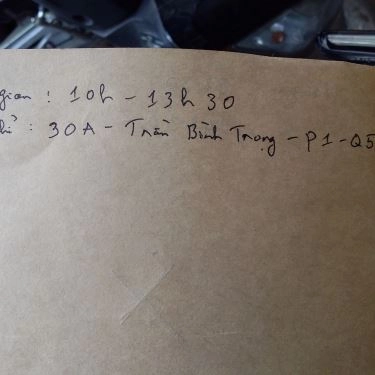 gian : 10h - 13h30
chỉ : 30A - Trần Bình Trọng - P1 - Q5